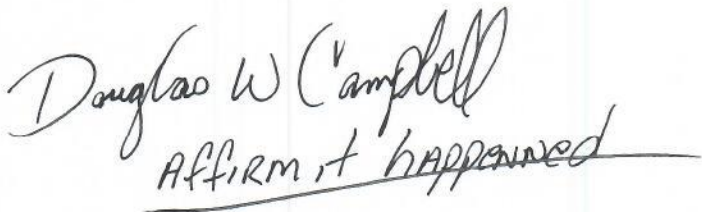 Douglas W Campbell
Affirm it happenned